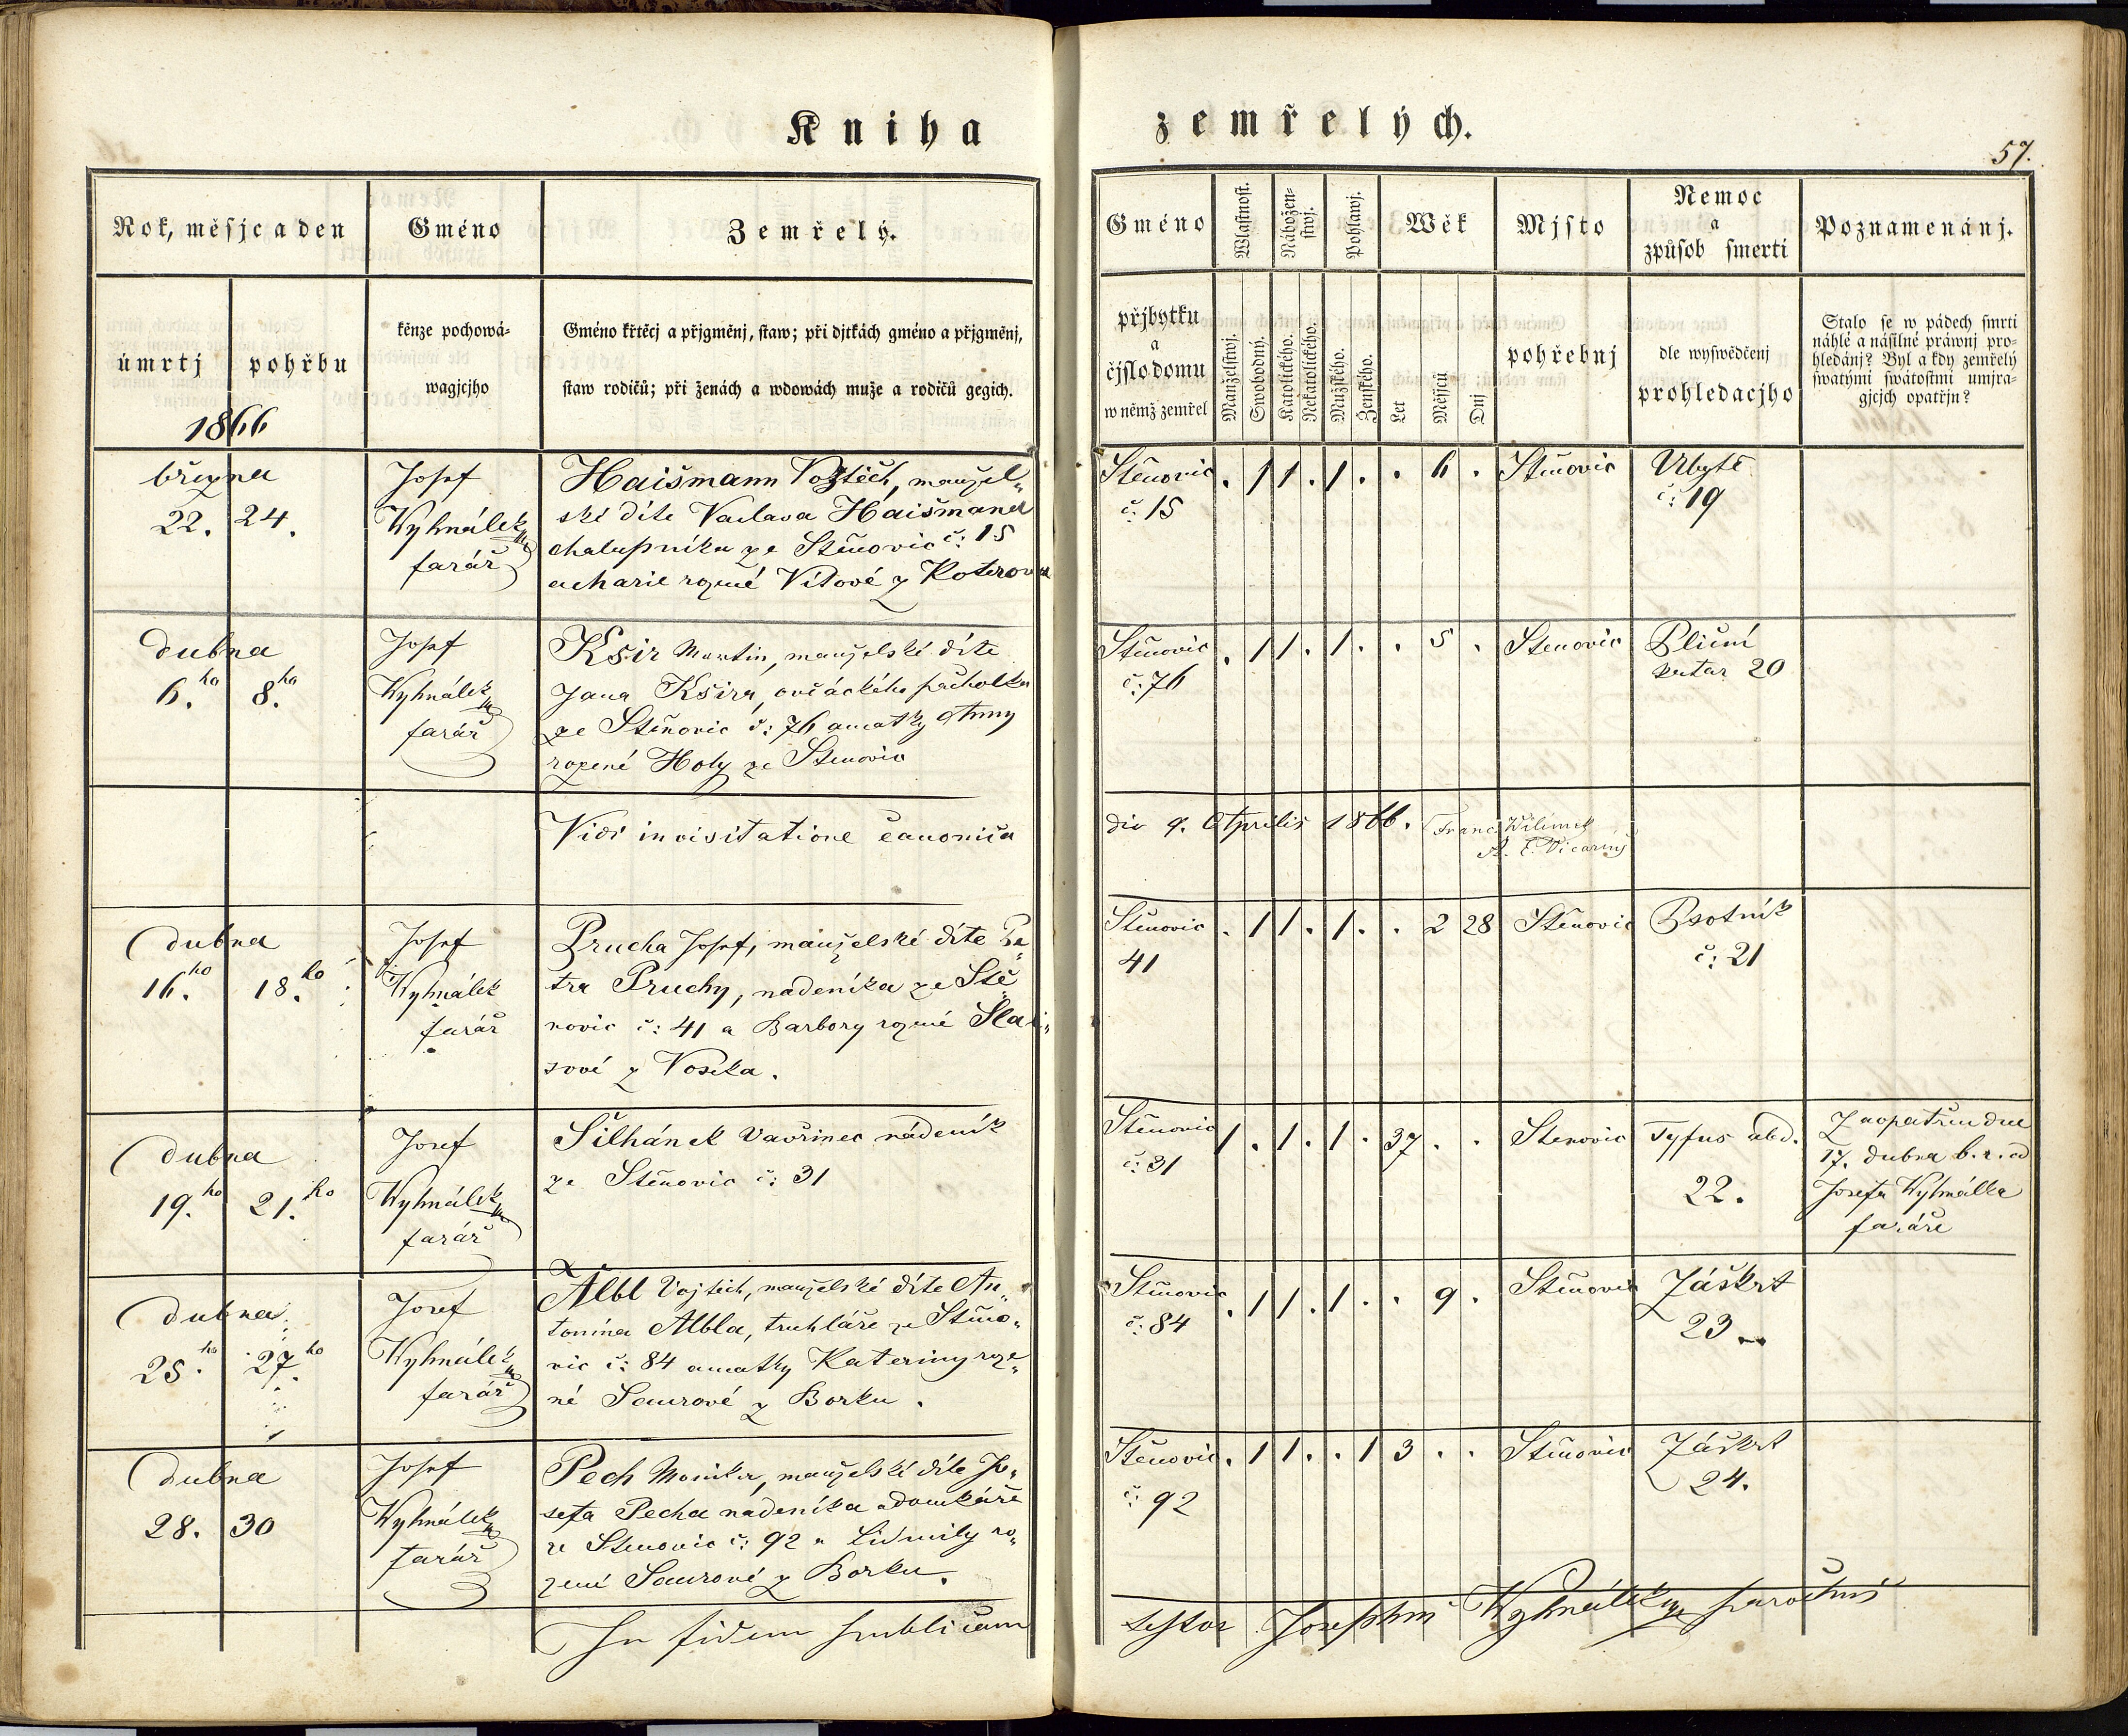 Kniha zemřelých.
57.
Rok, měsjc a den
Gméno
Zemřelý.
Gméno
Wlastnost.
Nábožen-
stwj.
Pohlawj.
Wěk
Mjsto
Nemoc
a
způsob smerti
Poznamenánj.
úmrtj
pohřbu
1866
kěnze pochowá-
wagjcjho
Gméno křtěcj a přjgměnj, staw; při djtkách gméno a přjgměnj,
staw rodičů; při ženách a wdowách muže a rodičů gegich.
přjbytku
a
čjslo domu
w němž zemřel
Manželstwj.
Swobodný.
Katolického.
Nekatolického.
Mužského.
Ženského.
Let
Měsjců
Dnj
pohřebnj
dle wyswědčenj
prohledacjho
Stalo se w pádech smrti
náhlé a násilné práwnj pro-
hledánj? Byl a kdy zemřelý
swatými swátostmi umjra-
gjcjch opatřjn?
března
22. 24.
Josef
Wyhnálek
farář
Haišmann Vojtěch, manžel-
ské díte Vaclava Haišmana
chalupníka ze Stěnovic č: 15
a Marie rozené Vítové z Koterova
Stěnovic
č: 15
. 1 1 . 1 . . 6 .
Stěnovic
Ubytě
č: 19
dubna
6. ho 8. ho
Josef
Wyhnálek
farář
Kšir Martin, manželské díte
Jana Kšira, ovčáckého pacholka
ze Stěnovic č: 76 a matky Anny
rozené Holy ze Stěnovic
Stěnovic
č: 76
. 1 1 . 1 . . 5 .
Stenovic
Plicní
katar 20
Vidi in visitatione canonica
die 9. Aprilis 1866. Franc. Wilimek
A. E. Vicarius
dubna
16. ho 18. ho
Josef
Wyhnálek
farář
Prucha Josef, manželské díte Pe-
tra Pruchy, nadeníka ze Stě
novic č: 41 a Barbory rozené
sové z Voseka.
Stěnovic
41
. 1 1 . 1 . . 2 28
Stěnovic
Psotník
č: 21
dubna
19. ho 21. ho
Josef
Wyhnálek
farář
Šilhánek Vavřinec nádeník
ze Stěnovic č: 31
Stěnovic
č: 31
1 . 1 . 1 . 37 . .
Stenovic
Tyfus abd.
22.
Zaopatřen dne
17. dubna b. r. od
Josefa Wyhnálka
faráře
dubna
25. ho 27. ho
Josef
Wyhnálek
farář
Albl Vojtěch, manželské díte An-
tonína Albla, truhláře ze Stěno-
vic č: 84 a matky Kateriny roze-
né Saurové z Borku.
Stěnovic
č: 84
. 1 1 . 1 . . 9 .
Stěnovic
Záškrt
23
dubna
28. 30
Josef
Wyhnálek
farář
Pech Monika, manželské díte Jo-
sefa Pecha nádeníka a domkáře
ze Stenovic č: 92 a Lidmily ro-
zené Saurové z Borku.
Stěnovic
č: 92
. 1 1 . . 1 3 . .
Stěnovic
Záškrt
24.
In fidem publicam
testor Josephus Wyhnálek parochus